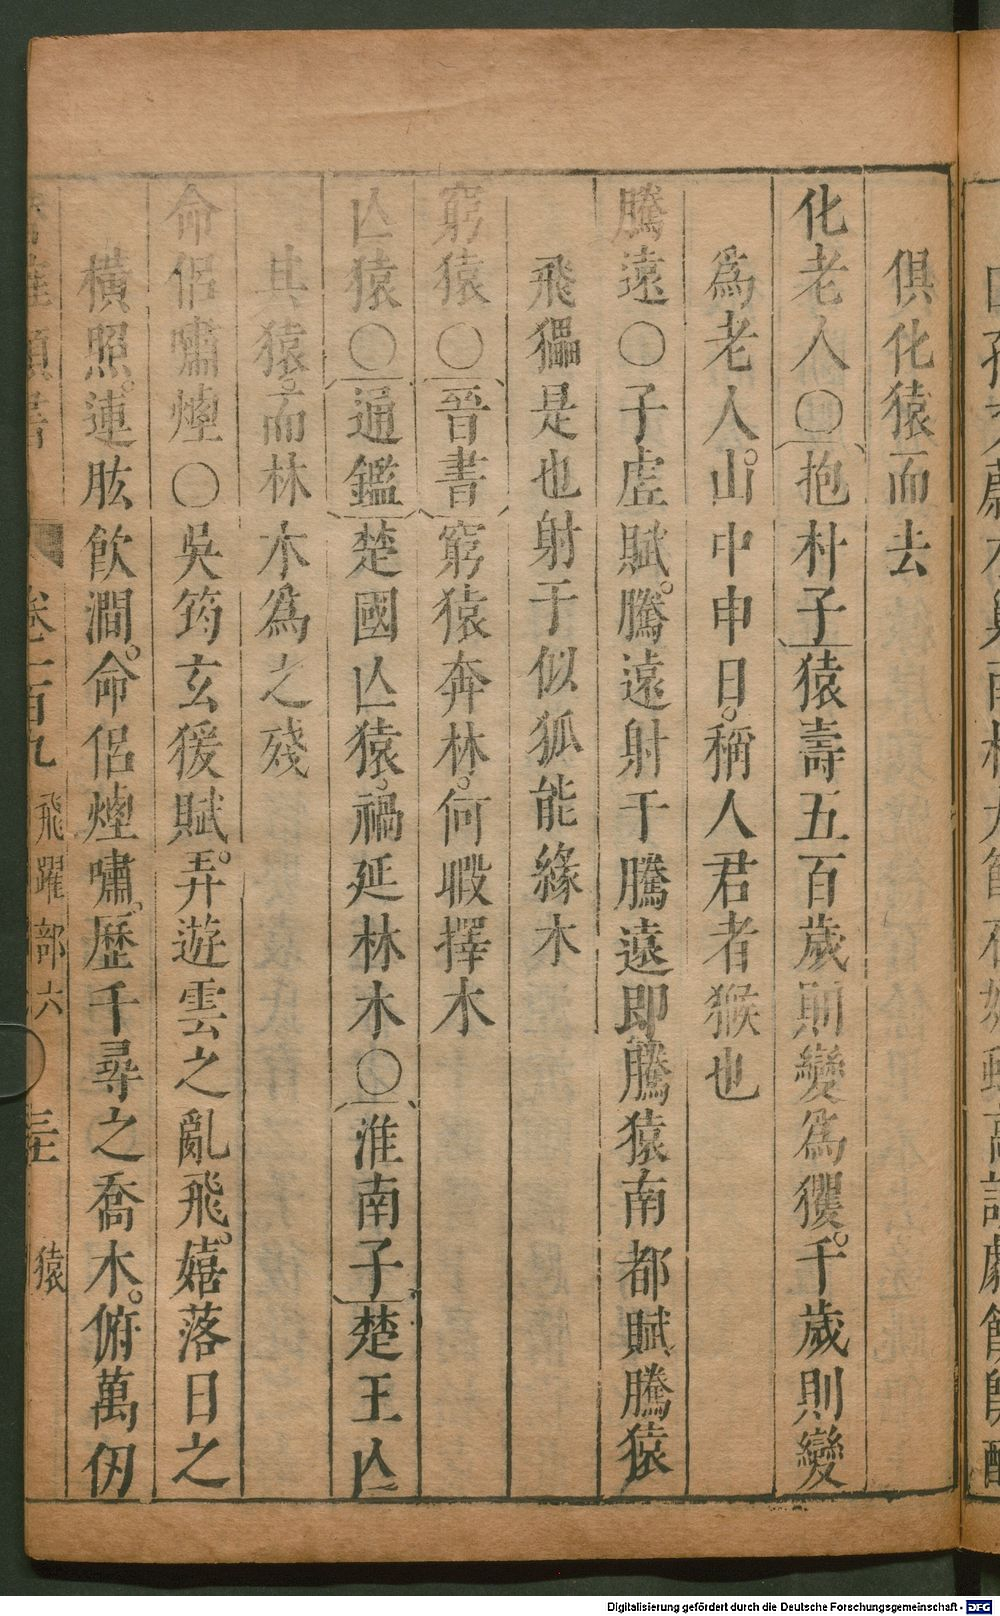 俱化猿而去
化老人○抱朴子猿壽五百歲則變爲玃。千歲則變
爲老人。山中申日。稱人君者猴也
騰遠○子虛賦。騰遠射干騰遠即騰猿南都賦騰猿
飛㹨是也射干似狐能緣木
窮猿○晉書窮猿奔林。何暇擇木
亾猿○通鑑楚國亾猿。禍延林木○淮南子楚王亾
其猿。而林木爲之殘
命侣嘯煙○吳筠玄猨賦。弄遊雲之亂飛。嬉落日之
橫照。連肱飲澗。命侣煙嘯。歷千尋之喬木。俯萬仞
卷一百九 飛躍部六 猿
Digitalisierung gefördert durch die Deutsche Forschungsgemeinschaft - DFG